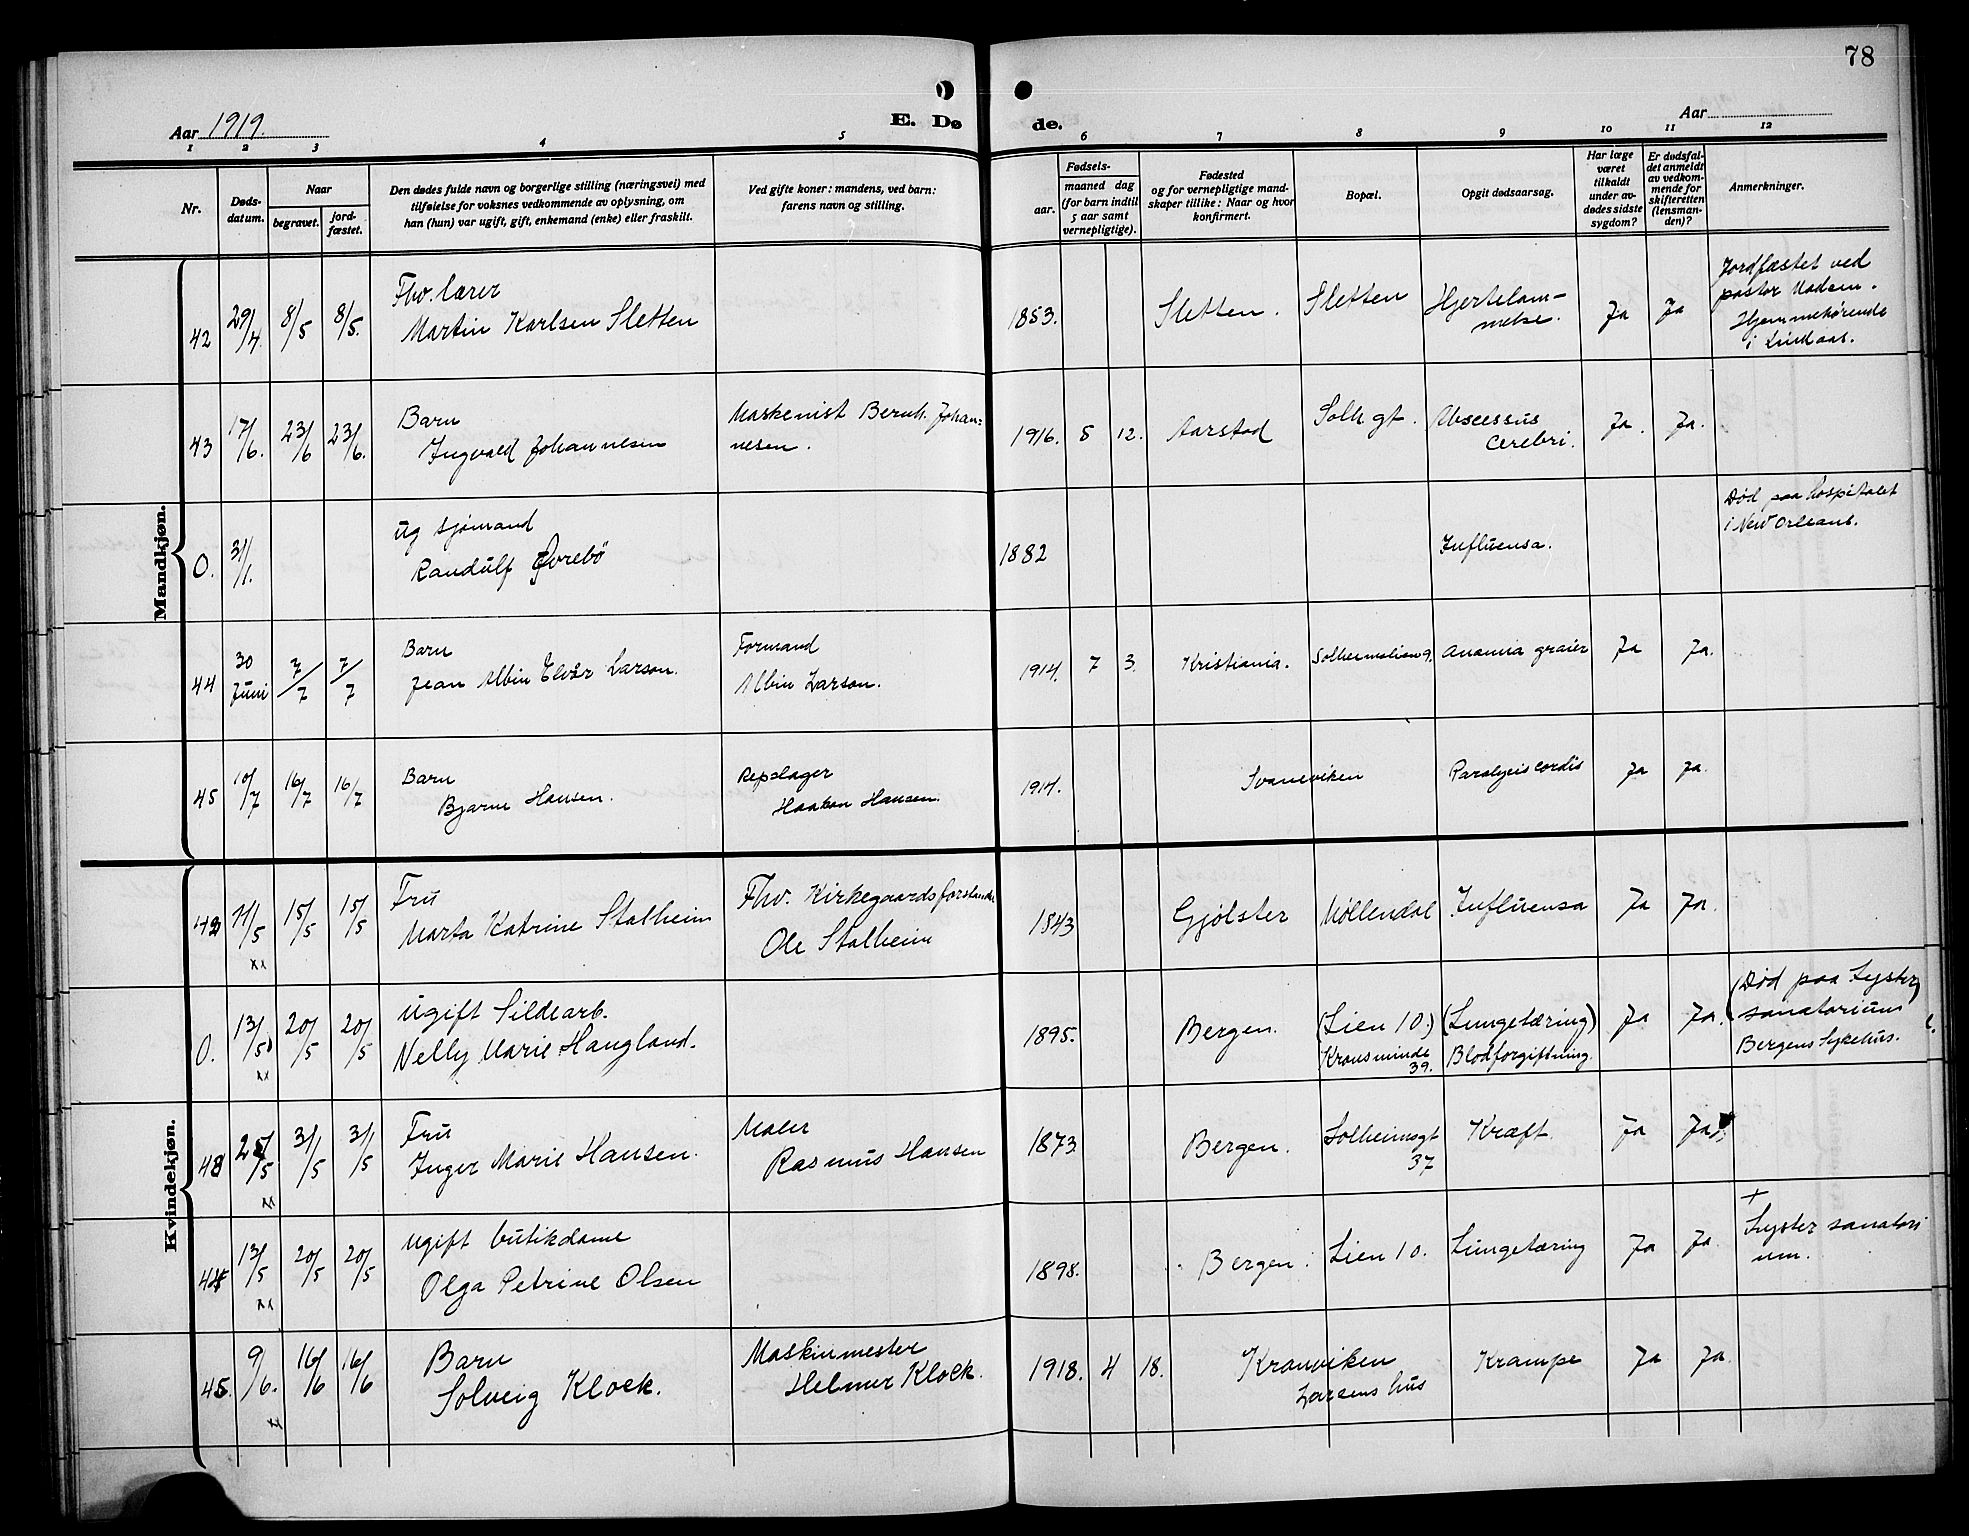 78
Aar 1919.
E. Dø
de.
Aar
1 2 3 4 5 6 7 8 9 10 11 12
Nr.
Døds-
datum.
Naar
begravet.
jord-
fæstet.
Den dødes fulde navn og borgerlige stilling (næringsvei) med
tilføielse for voksnes vedkommende av oplysning, om
han (hun) var ugift, gift, enkemand (enke) eller fraskilt.
Ved gifte koner: mandens, ved barn:
farens navn og stilling.
Fødsels-
aar.
maaned dag
(for barn indtil
5 aar samt
vernepligtige).
Fødested
og for vernepligtige mand-
skaper tillike: Naar og hvor
konfirmert.
Bopæl.
Opgit dødsaarsag.
Har læge
været
tilkaldt
under av-
dødes sidste
sygdom?
Er dødsfal-
det anmeldt
av vedkom-
mende for
skifteretten
(lensman-
den)?
Anmerkninger.
Mandkjøn.
42 29/4. 8/5 8/5.
Fhv. lærer
Martin Karlsen Sletten
1853. Sletten. Sletten
Hjertelam-
melse.
Ja Ja
Jordfæstet ved
pastor Madsen.
Hjemmehørende
i Lindaas.
43 17/6. 23/6 23/6.
Barn
Ingvald Johannesen
Maskenist Bernh. Johan-
nesen.
1916. 5 12. Aarstad Solh. gt.
Abscessus
cerebri.
Ja. Ja.
0. 31/1.
ug sjømand
Randulf Øvrebö
1882 Influensa.
Død paa hospitalet
i New Orleans.
44 30 Juni 7/7 7/7
Barn
Jean Albin Elvir Larson.
Formand
Albin Larson.
1914. 7 3. Kristiania. 9. Ja Ja.
45 10/7 16/7 16/7
Barn
Bjarne Hansen.
Repslager
Haakon Hansen.
1914. Svaneviken Paralysis cordis Ja Ja.
Kvindekjøn.
11/5 15/5 15/5
xx
Fru
Marta Katrine Stalheim
Fhv. Kirkegaardsforstander
Ole Stalheim
1843 Gjølster Møllendal Influensa Ja Ja.
0. 13/5 20/5 20/5
xx
Ugift Sildearb.
Nelly Marie Haugland.
1895. Bergen.
(Lien 10.)
Kransminde
39.
(Lungetæring)
Blodforgiftning.
Ja Ja.
(Død paa Lyster)
sanatorium
Bergens Sykehus.
31/5 31/5
xx
Fru
Inger Marie Hansen.
Maler
Rasmus Hansen
1873 Bergen.
Solheimsgt
37
Kræft. Ja Ja
13/5 20/5 20/5
xx
ugift butikdame
Olga Petrine Olsen
1898. Bergen. Lien 10. Lungetæring Ja Ja.
+
Lyster sanatori
um.
45. 9/6. 16/6 16/6
xx
Barn
Solveig Klock.
Maskinmester
Helmer Klock.
1918. 4 18.
Kranviken
Larsens hus
Krampe Ja Ja.